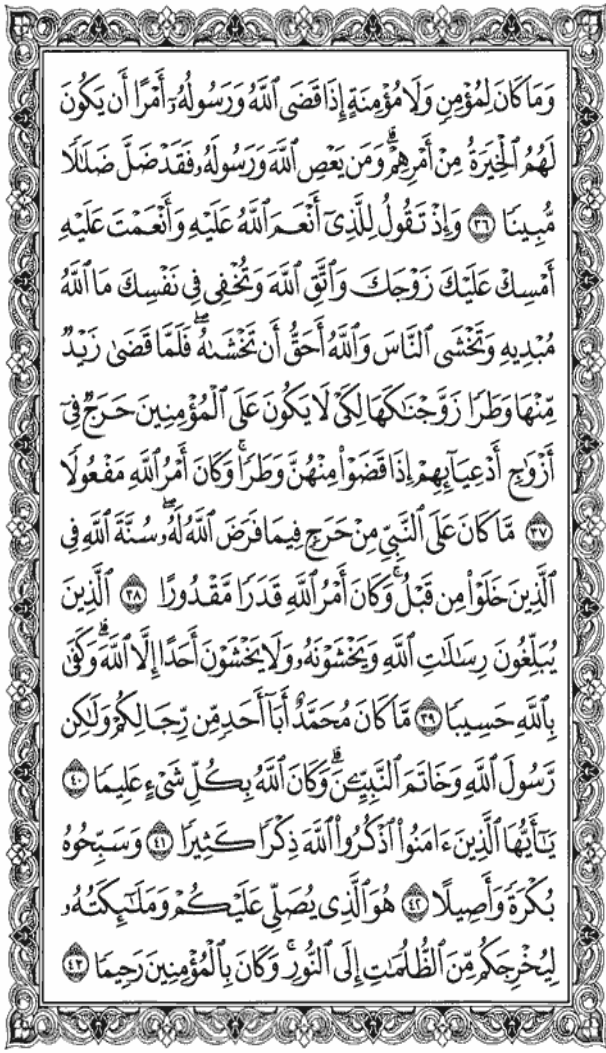 وَمَا كَانَ لِمُؤْمِنٍ وَلَا مُؤْمِنَةٍ إِذَا قَضَى ٱللَّهُ وَرَسُولُهُۥٓ أَمْرًا أَن يَكُونَ
لَهُمُ ٱلْخِيَرَةُ مِنْ أَمْرِهِمْ ۗ وَمَن يَعْصِ ٱللَّهَ وَرَسُولَهُۥ فَقَدْ ضَلَّ ضَلَٰلًا
مُّبِينًا ٣٦ وَإِذْ تَقُولُ لِلَّذِىٓ أَنْعَمَ ٱللَّهُ عَلَيْهِ وَأَنْعَمْتَ عَلَيْهِ
أَمْسِكْ عَلَيْكَ زَوْجَكَ وَٱتَّقِ ٱللَّهَ وَتُخْفِى فِى نَفْسِكَ مَا ٱللَّهُ
مُبْدِيهِ وَتَخْشَى ٱلنَّاسَ وَٱللَّهُ أَحَقُّ أَن تَخْشَىٰهُ ۖ فَلَمَّا قَضَىٰ زَيْدٌ
مِّنْهَا وَطَرًا زَوَّجْنَٰكَهَا لِكَىْ لَا يَكُونَ عَلَى ٱلْمُؤْمِنِينَ حَرَجٌ فِىٓ
أَزْوَٰجِ أَدْعِيَآئِهِمْ إِذَا قَضَوْا۟ مِنْهُنَّ وَطَرًا ۚ وَكَانَ أَمْرُ ٱللَّهِ مَفْعُولًا
٣٧ مَّا كَانَ عَلَى ٱلنَّبِىِّ مِنْ حَرَجٍ فِيمَا فَرَضَ ٱللَّهُ لَهُۥ ۖ سُنَّةَ ٱللَّهِ فِى
ٱلَّذِينَ خَلَوْا۟ مِن قَبْلُ ۚ وَكَانَ أَمْرُ ٱللَّهِ قَدَرًا مَّقْدُورًا ٣٨ ٱلَّذِينَ
يُبَلِّغُونَ رِسَٰلَٰتِ ٱللَّهِ وَيَخْشَوْنَهُۥ وَلَا يَخْشَوْنَ أَحَدًا إِلَّا ٱللَّهَ ۗ وَكَفَىٰ
بِٱللَّهِ حَسِيبًا ٣٩ مَّا كَانَ مُحَمَّدٌ أَبَآ أَحَدٍ مِّن رِّجَالِكُمْ وَلَٰكِن
رَّسُولَ ٱللَّهِ وَخَاتَمَ ٱلنَّبِيِّۦنَ ۗ وَكَانَ ٱللَّهُ بِكُلِّ شَىْءٍ عَلِيمًا ٤٠
يَٰٓأَيُّهَا ٱلَّذِينَ ءَامَنُوا۟ ٱذْكُرُوا۟ ٱللَّهَ ذِكْرًا كَثِيرًا ٤١ وَسَبِّحُوهُ
بُكْرَةً وَأَصِيلًا ٤٢ هُوَ ٱلَّذِى يُصَلِّى عَلَيْكُمْ وَمَلَٰٓئِكَتُهُۥ
لِيُخْرِجَكُم مِّنَ ٱلظُّلُمَٰتِ إِلَى ٱلنُّورِ ۚ وَكَانَ بِٱلْمُؤْمِنِينَ رَحِيمًا ٤٣